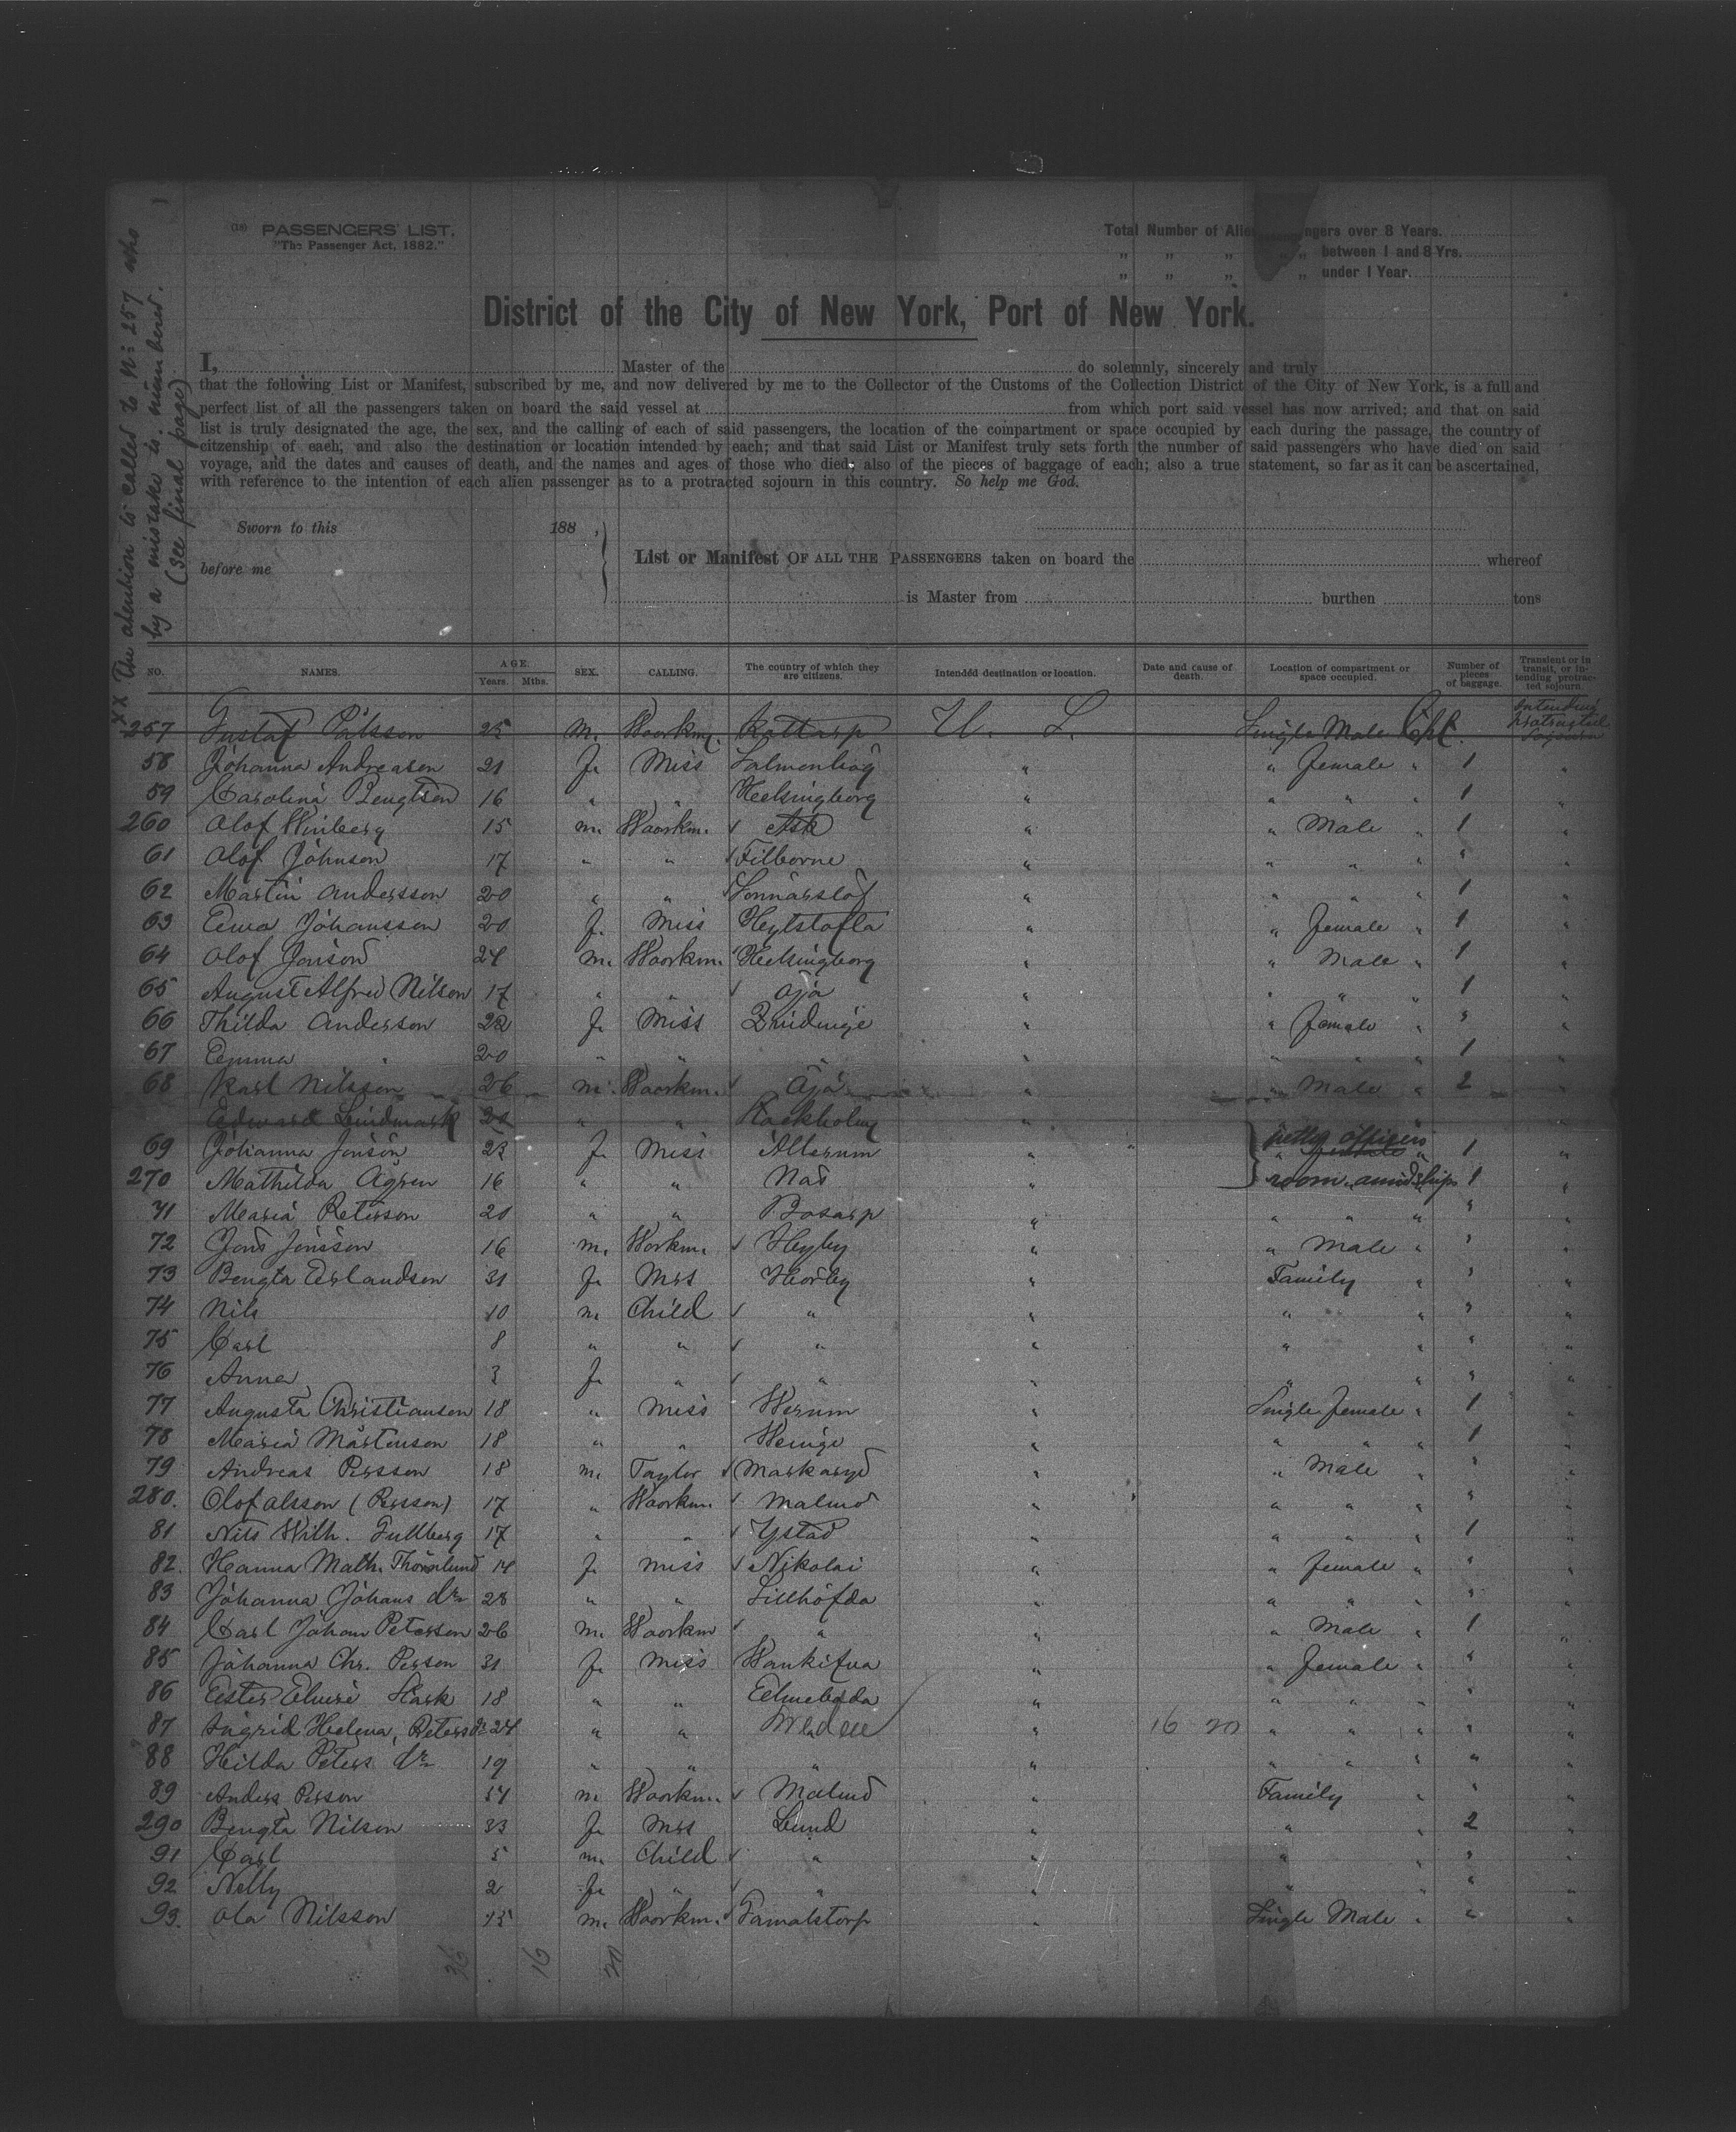 XX The atention is called to No 257 who
by a mistake is numbered.
(See final page)
(18) PASSENGERS' LIST.
"The Passenger Act, 1882."
Total Number of Alien Passengers over 8 Years.
„ „ „ „ between 1 and 8 Yrs.
„ „ „ „ under 1 Year.
District of the City of New York, Port of New York.
I, Master of the do solemnly, sincerely and truly
that the following List or Manifest, subscribed by me, and now delivered by me to the Collector of the Customs of the Collection District of the City of New York, is a full and
perfect list of all the passengers taken on board the said vessel at from which port said vessel has now arrived; and that on said
list is truly designated the age, the sex, and the calling of each of said passengers, the location of the compartment or space occupied by each during the passage, the country of
citzenship of each, and also the destination or location intended by each; and that said List or Manifest truly sets forth the number of said passengers who have died on said
voyage, and the dates and causes of death, and the names and ages of those who died; also of the pieces of baggage of each; also a true statement, so far as it can be ascertained,
with reference to the intention of each alien passenger as to a protracted sojourn in this country. So help me God.
Sworn to this 188 ,
before me
List or Manifest OF ALL THE PASSENGERS taken on board the whereof
is Master from burthen tons
NO. NAMES. AGE. Years. Mths. SEX. CALLING. The country of which they are citizens. Intended destination or location. Date and cause of death. Location of compartment or space occupied. Number of pieces of baggage. Transient or in transit, or intending protracted sojourn.
257 Gustaf Pålsson 25 m. Woorkm. Kattarp U. S. Single Male Cpt. intending protracted sojourn
58 Johanna Andreasen 21 f. Miss Salmonhög " " female " 1 "
59 Carolina Bengtson 16 " " Helsingborg " " " " 1 "
260 Olof Winberg 15 m. Woorkm. Ask " " Male " 1 "
61 Olof Johnson 17 " " Filborne " " " " " "
62 Martin Andersson 20 " " Konnarslöf " " " " 1 "
63 Emra Johansson 20 f. Miss " " female " 1 "
64 Olof Jönson 24 m. Woorkm. Helsingborg " " Male " 1 "
65 August Alfred Nilson 17 " " " " " " 1 "
66 Thilda Anderson 22 f. Miss " " female " " "
67 Emma " 20 " " " " " " " 1 "
68 Karl Nilsson 26 m. Woorkm. " " Male " 2 "
Edward Lindmark 20 " " Stockholm "
69 Johanna Jönson 23 f. Miss Allerum " petty officers 1 "
270 Mathilda Ågren 16 " " Nås " room amidships 1 "
71 Maria Peterson 20 " " Bosarp " " " " " "
72 Jöns Jönsson 16 m. Workm. Hyby " " Male " " "
73 Bengta Erlandson 31 f. Mrs Hörby " Family " " "
74 Nils 10 m. Child " " " " " "
75 Carl 8 " " " " " " " "
76 Anna 3 f. " " " " " " "
77 Augusta Christianson 18 " Miss Werum " Single female " 1 "
78 Maria Mårtenson 18 " " " " " " 1 "
79 Andreas Persson 18 m. Taylor Maskaryd " " Male " " "
280. Olof Olsson (Persson) 17 " Woorkm. Malmö " " " " " "
81 Nils Wilh. Gullberg 17 " " Ystad " " " " 1 "
82. Hanna Math. Thörnlund 14 f. Miss Nikolai " " female " " "
83 Johanna Johans dr 28 " " Lillhöfda " " " " " "
84 Carl Johan Peterson 26 m. Woorkm " " " Male " 1 "
85 Johanna Chr. Person 31 f. Miss Wankifva " " female " " "
86 Ester Elvire Stark 18 " " Elmeboda " " " " " "
87 Ingrid Helena, Peters dr 24 " " " 16 20 " " " " "
88 Hilda Peters dr 19 " " " " " " " " "
89 Anders Person 34 m Woorkm. Malmö " Family " " "
290 Bengta Nilson 33 f. Mrs Lund " " " 2 "
91 Carl 5 m. Child " " " " " "
92 Nelly 2 f. " " " " " " "
93. Ola Nilsson 15 m. Woorkm. Tomalstorp " Single Male " " "
36 16 20